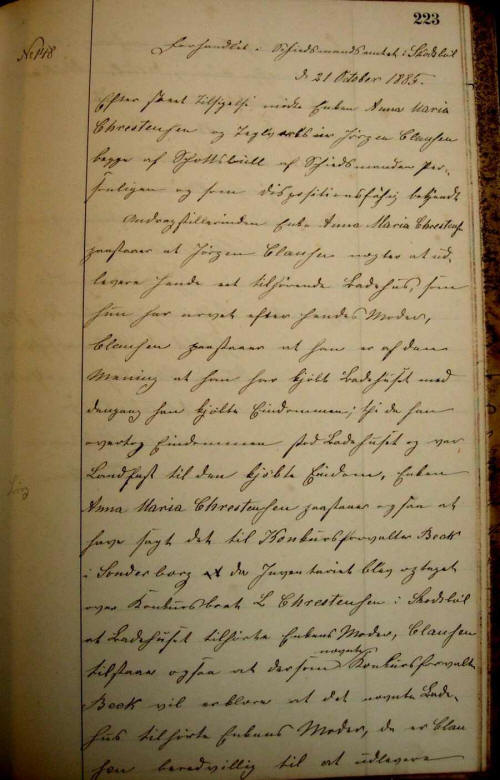 223
No 148
Forhandlet i Schiedsmandsamtet i Skodsbøl
d. 21 October 1885.
Efter skeet Tilsigelse mødte Enken Anna Maria
Chrestensen og Teglværkseier Jörgen Clausen
begge af Schottsbüll af Schiedsmanden Per-
sönligen og som dispositionsfähig bekjendt
Andragstillerinden Enke Anna Maria Chrestens.
paastaaer at Jörgen Clausen nægter at ud-
levere hende eet tilhørende Badehus, som
hun har arvet efter hendes Moder,
Clausen paastaaer at han er af den
Mening at han har kjöbt Badehuset med
dengang han kjöbte Eindommen; thi da han
overtog Eindommen stod Badehuset og var
Landfast til den kjöbte Eindom, Enken
Anna Maria Chrestensen paastaaer ogsaa at
have sagt det til Konkursforvalter Beck
i Sonderborg da Inventariet blev optaget
over Konkursboet L Chrestensen i Skodsböl
at Badehuset tilhörte Enkens Moder, Clausen
tilstaaer ogsaa at dersom nævnte Konkursforvalter
Beck vil erklære at det nævnte Bade-
hus tilhörte Enkens Moder, da er Clau-
sen beredvillig til at udlevere